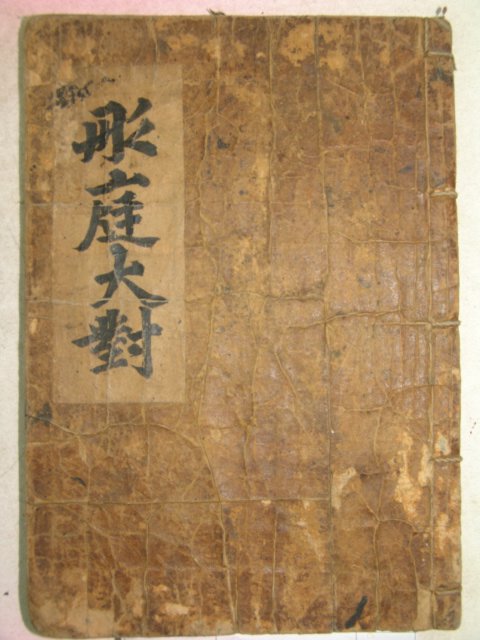 彤庭大對